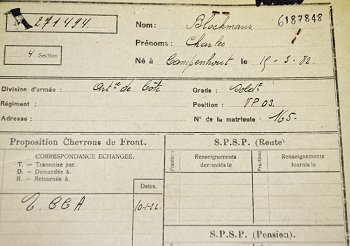 271494
Nom: Blockmans 6187848
Prénoms: Charles
4 Section
Né à Campenhout le 15-3-82.
Division d'armée: Art^ie de Côte Grade: Sold^t
Régiment: Position: VP 03.
Adresse: N° de la matricule 165-
Proposition Chevrons de Front.
S.P.S.P. (Route)
CORRESPONDANCE ÉCHANGÉE.
T. — Transmise par.
D. — Demandée à.
R. — Retournée à.
Dates.
Renseignements demandés le
Renseignements fournis le
10-1-22
S.P.S.P. (Pension).